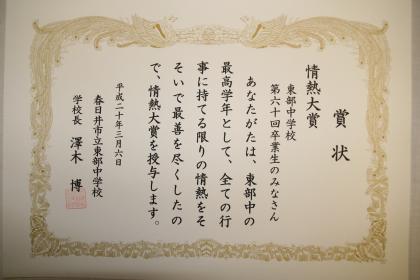 賞状
情熱大賞
東部中学校
第六十回卒業生のみなさん
あなたがたは、東部中の
最高学年として、全ての行
事に持てる限りの情熱をそ
そいで最善を尽くしたの
で、情熱大賞を授与します。
平成二十年三月六日
春日井市立東部中学校
学校長 澤木 博